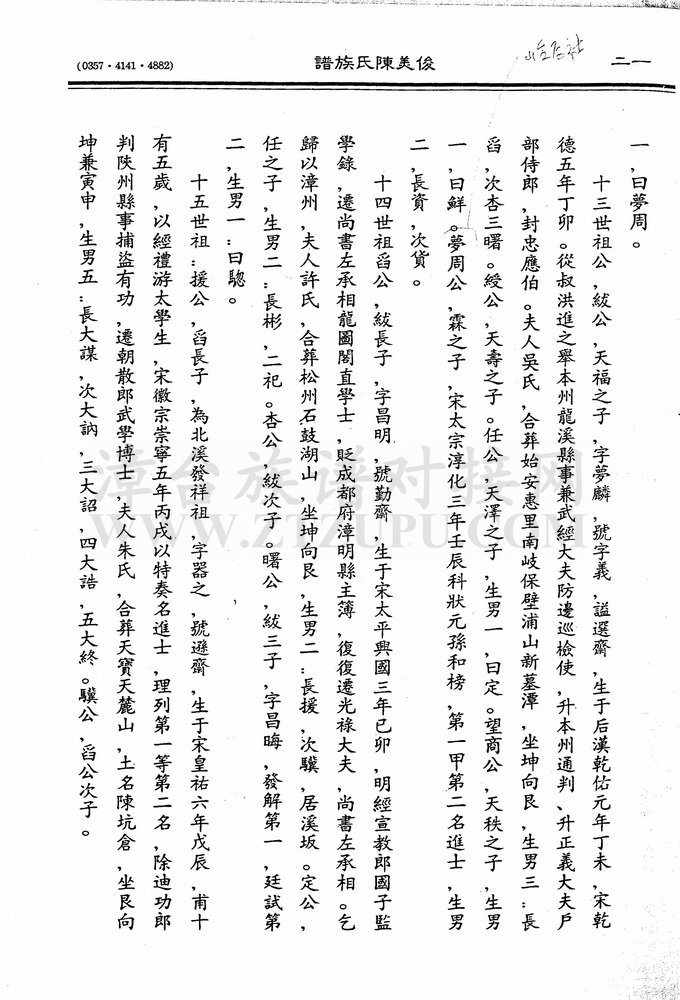 (0357·4141·4882)
譜族氏陳美俊
二一
一,曰夢周。
十三世祖公,紱公,天福之子,字夢麟,號字義,謚選齋,生于后漢乾佑元年丁未,宋乾
德五年丁卯。從叔洪進之舉本州龍溪縣事兼武經大夫防邊巡檢使,升本州通判、升正義大夫戶
部侍郎,封忠應伯。夫人吳氏,合葬始安惠里南岐保壁浦山新墓潭,坐坤向艮,生男三:長
舀,次杏三曙。綬公,天壽之子。任公,天澤之子,生男一,曰定。望商公,天秩之子,生男
一,曰鮮。夢周公,霖之子,宋太宗淳化三年壬辰科狀元孫和榜,第一甲第二名進士,生男
二,長資,次貨。
十四世祖舀公,紱長子,字昌明,號勤齋,生于宋太平興國三年己卯,明經宣教郎國子監
學錄,遷尚書左承相龍圖閣直學士,貶成都府漳明縣主簿,復復遷光祿大夫,尚書左承相。乞
歸以漳州,夫人許氏,合葬松州石鼓湖山,坐坤向艮,生男二:長援,次驥,居溪坂。定公,
任之子,生男二:長彬,二祀。杏公,紱次子。曙公,紱三子,字昌晦,發解第一,廷試第
二,生男一:曰驄。
十五世祖:援公,舀長子,為北溪發祥祖,字器之,號遜齋,生于宋皇祐六年戊辰,甫十
有五歲,以經禮游太學生,宋徽宗崇寧五年丙戌以特奏名進士,理列第一等第二名,除迪功郎
判陝州縣事捕盜有功,遷朝散郎武學博士,夫人朱氏,合葬天寶天麓山,土名陳坑倉,坐艮向
坤兼寅申,生男五:長大謀,次大訥,三大詔,四大誥,五大終。驥公,舀公次子。
漳台族谱对接网
WWW.ZTZUPU.COM